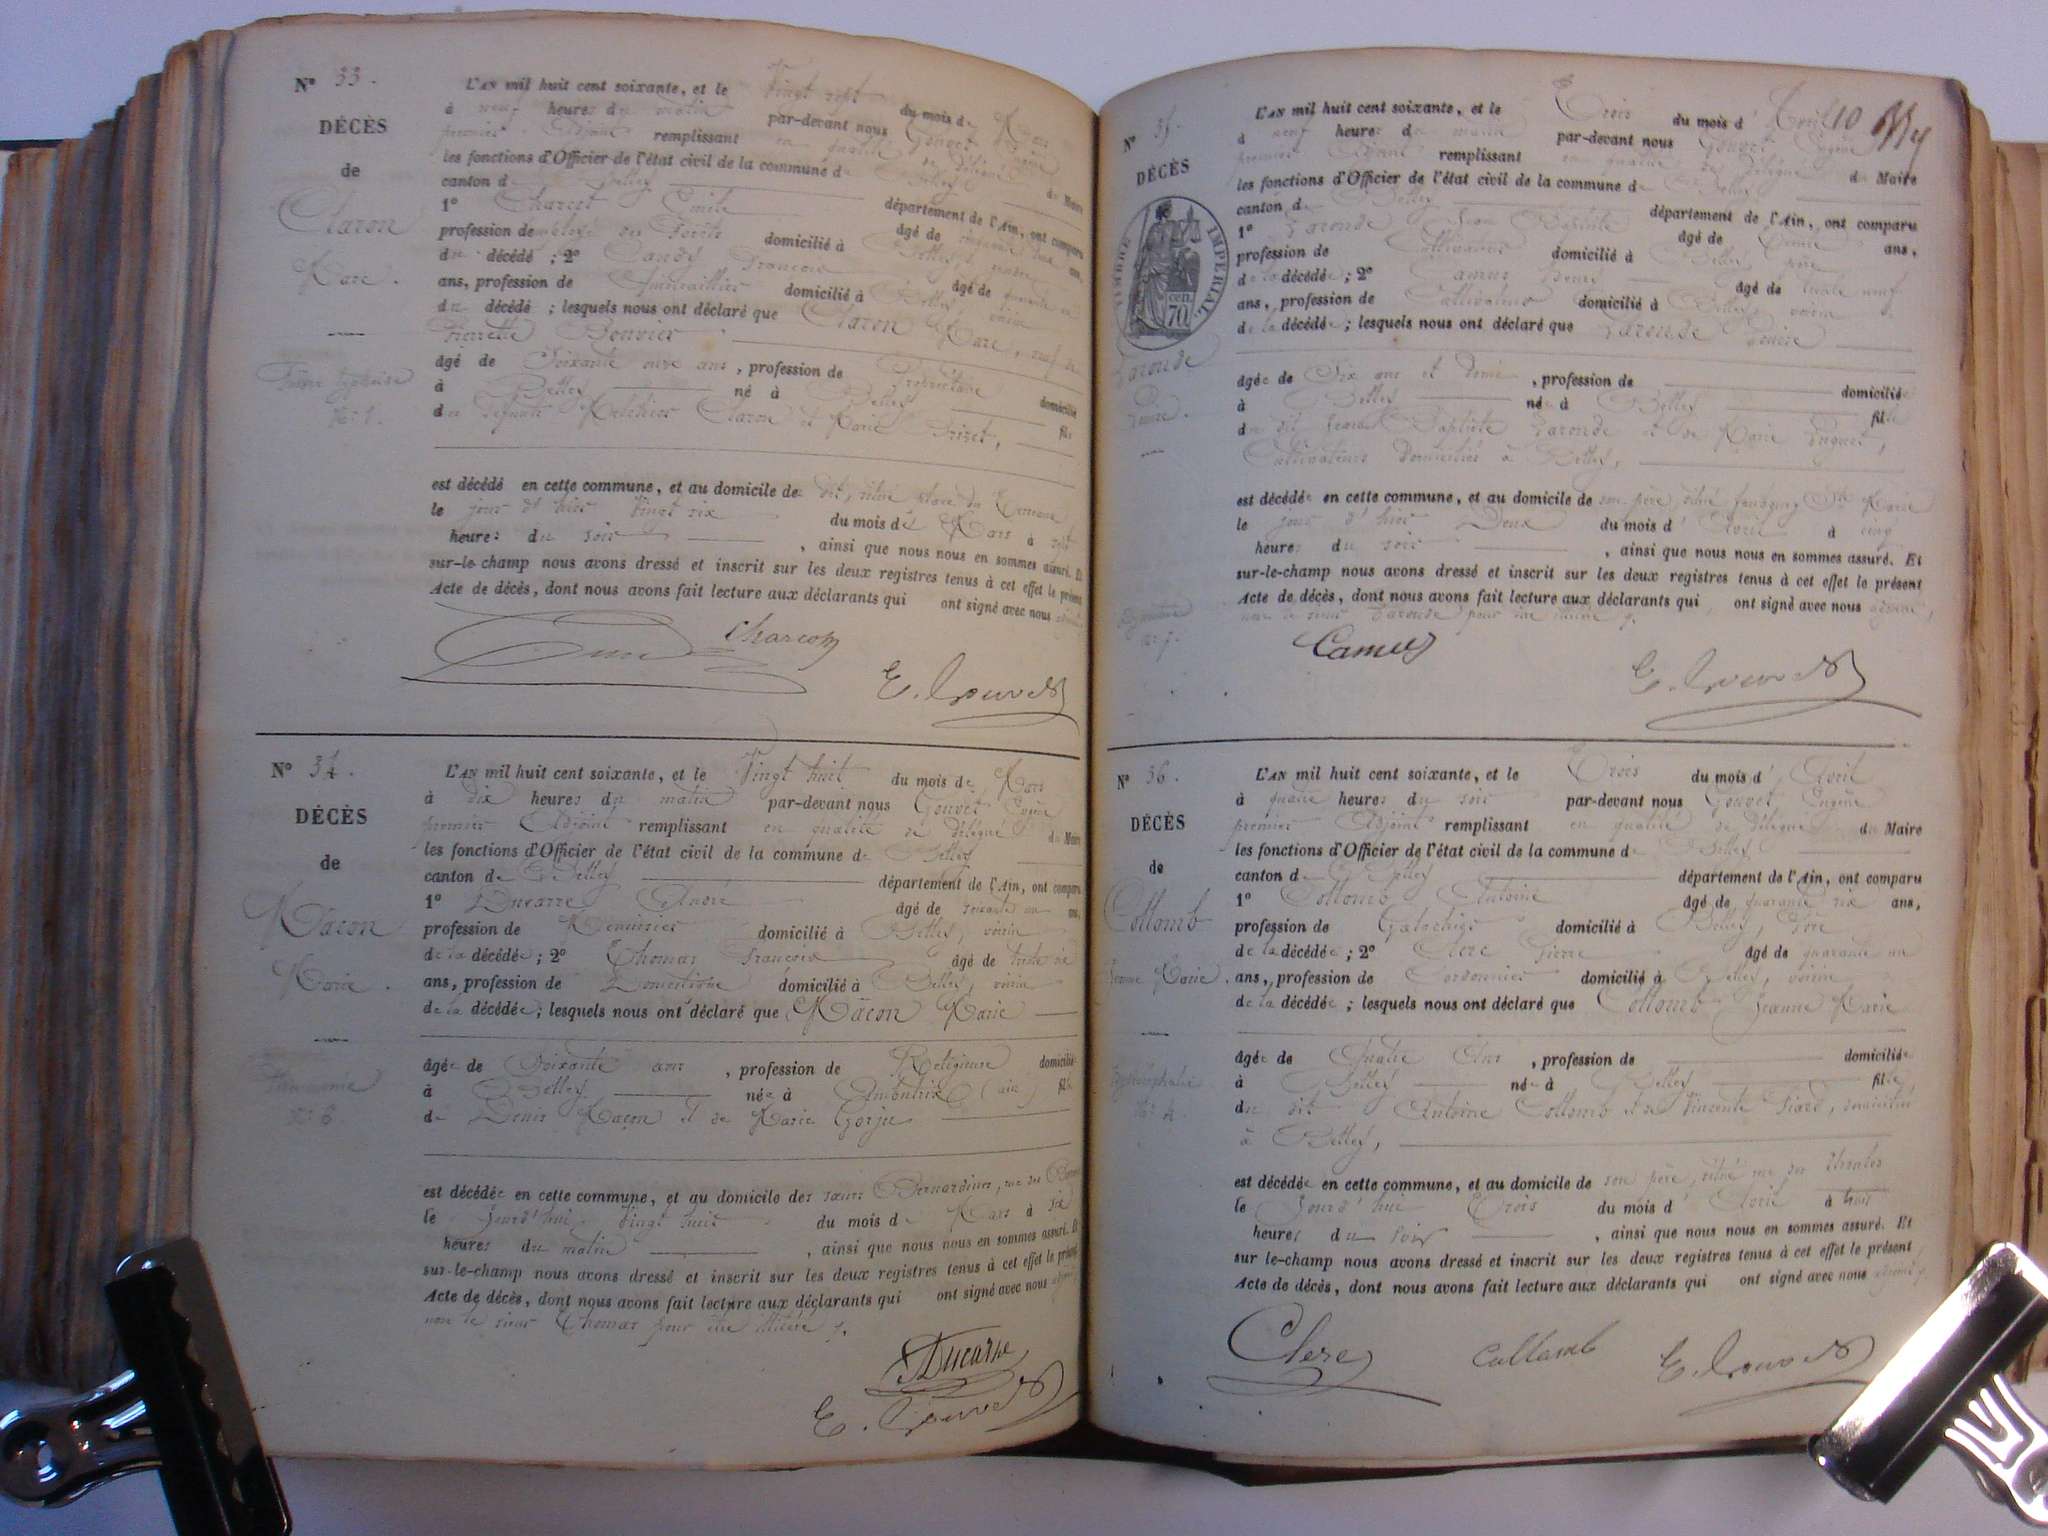 N° 33.
DÉCÈS
de
Claron
Marc.
L'AN mil huit cent soixante, et le Vingt sept du mois de Mars
à neuf heures du matin par-devant nous Gouvet Eugène
premier Adjoint remplissant en qualité de Délégué du Maire
les fonctions d'Officier de l'état civil de la commune de Belley
canton de Belley département de l'Ain, ont comparu
1° Charcot Emile âgé de ans,
profession de employé des Forêts domicilié à Belley,
du décédé ; 2° François âgé de
ans, profession de domicilié à Belley, voisin
du décédé ; lesquels nous ont déclaré que Claron Marc, veuf de
Pierrette Bouvier
âgé de Soixante onze ans, profession de Propriétaire domicilié
à Belley né à Belley fils
du défunt Melchior Claron et Marie
est décédé en cette commune, et au domicile de dit, situé place du Terreau
le jour d'hier Vingt six du mois de Mars à sept
heures du soir, ainsi que nous nous en sommes assuré. Et
sur-le-champ nous avons dressé et inscrit sur les deux registres tenus à cet effet le présent
Acte de décès, dont nous avons fait lecture aux déclarants qui ont signé avec nous
E. Gouvet
N° 34.
DÉCÈS
de
Macon
Marie.
L'AN mil huit cent soixante, et le Vingt huit du mois de Mars
à dix heures du matin par-devant nous Gouvet Eugène
premier Adjoint remplissant en qualité de Délégué du Maire
les fonctions d'Officier de l'état civil de la commune de Belley
canton de Belley département de l'Ain, ont comparu
1° Ducarre André âgé de soixante un ans,
profession de Menuisier domicilié à Belley, voisin
de la décédée ; 2° Thomas François âgé de trente
ans, profession de Domestique domicilié à Belley, voisin
de la décédée ; lesquels nous ont déclaré que Macon Marie
âgée de Soixante ans, profession de Religieuse domiciliée
à Belley née à Ambutrix (ain) fille
de Denis Macon et de Marie Gorju
est décédée en cette commune, et au domicile des sœurs Bernardines, rue des
le jourd'hui Vingt huit du mois de Mars à six
heures du matin, ainsi que nous nous en sommes assuré. Et
sur-le-champ nous avons dressé et inscrit sur les deux registres tenus à cet effet le présent
Acte de décès, dont nous avons fait lecture aux déclarants qui ont signé avec nous
non le sieur Thomas pour être illitéré
Ducarre
E. Gouvet
10
N° 35.
DÉCÈS
TIMBRE IMPÉRIAL
70 cen.
Laronde
L'AN mil huit cent soixante, et le Trois du mois d'Avril
à neuf heures du matin par-devant nous Gouvet Eugène
premier Adjoint remplissant en qualité de Délégué du Maire
les fonctions d'Officier de l'état civil de la commune de Belley
canton de Belley département de l'Ain, ont comparu
1° Laronde Jean Baptiste âgé de ans,
profession de Cultivateur domicilié à Belley, Père
de la décédée ; 2° Camus âgé de trente neuf
ans, profession de Cultivateur domicilié à Belley, voisin
de la décédée ; lesquels nous ont déclaré que Laronde
âgée de Six ans et demi, profession de domiciliée
à Belley née à Belley fille
du dit Jean Baptiste Laronde et de Marie
Cultivateurs Domiciliés à Belley,
est décédée en cette commune, et au domicile de son père, situé faubourg Ste Marie
le jour d'hier Deux du mois d'Avril à cinq
heures du soir, ainsi que nous nous en sommes assuré. Et
sur-le-champ nous avons dressé et inscrit sur les deux registres tenus à cet effet le présent
Acte de décès, dont nous avons fait lecture aux déclarants qui ont signé avec nous
Camus
E. Gouvet
N° 36.
DÉCÈS
de
Collomb
Jeanne Marie.
L'AN mil huit cent soixante, et le Trois du mois d'Avril
à quatre heures du soir par-devant nous Gouvet Eugène
premier Adjoint remplissant en qualité de Délégué du Maire
les fonctions d'Officier de l'état civil de la commune de Belley
canton de Belley département de l'Ain, ont comparu
1° Collomb Antoine âgé de quarante six ans,
profession de Galochier domicilié à Belley, Père
de la décédée ; 2° Clerc Pierre âgé de quarante un
ans, profession de Cordonnier domicilié à Belley, voisin
de la décédée ; lesquels nous ont déclaré que Collomb Jeanne Marie
âgée de Quatre Ans, profession de domiciliée
à Belley née à Belley fille
du dit Antoine Collomb et de Vincente domiciliés
à Belley,
est décédée en cette commune, et au domicile de son père, situé rue des
le Jourd'hui Trois du mois d'Avril à trois
heures du soir, ainsi que nous nous en sommes assuré. Et
sur-le-champ nous avons dressé et inscrit sur les deux registres tenus à cet effet le présent
Acte de décès, dont nous avons fait lecture aux déclarants qui ont signé avec nous
Clerc Collomb E. Gouvet